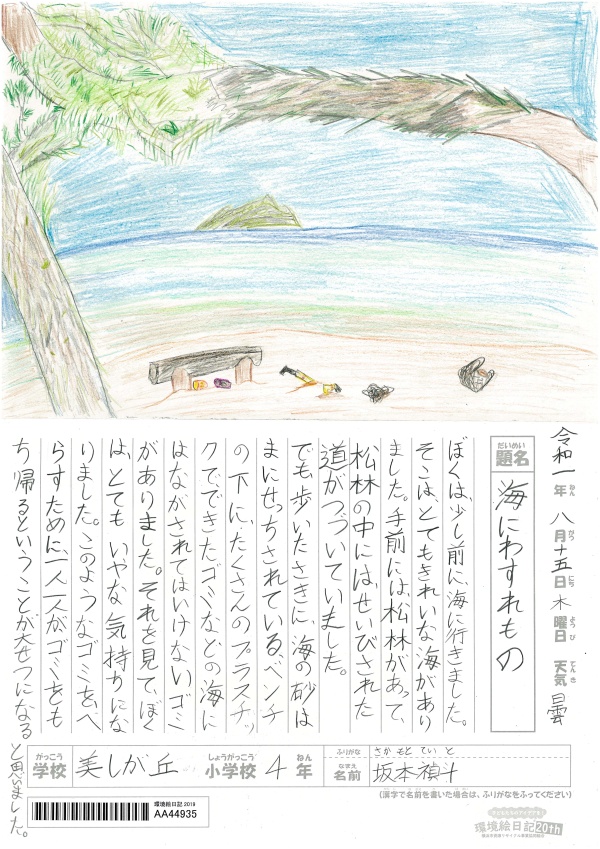 令和一年八月十五日木曜日 天気 曇
ねん がつ にち ようび てんき
だいめい
題名 海にわすれもの
ぼくは、少し前に、海に行きました。
そこは、とてもきれいな海があり
ました。手前には、松林があって、
松林の中には、せいびされた
道がつづいていました。
でも歩いたさきに、海の砂は
まにせっちされている、ベンチ
の下に、たくさんのプラスチッ
クでできたゴミなどの海に
はながされてはいけないゴミ
がありました。それを見て、ぼく
は、とても いやな気持りにな
りました。このようなゴミを、へ
らすために、一人一人がゴミをも
ち帰るということが大せつになる
と思いました。
がっこう しょうがっこう ねん ふりがな さか もと てい と
学校 美しが丘 小学校 4 年 なまえ 名前 坂本禎斗
(漢字で名前を書いた場合は、ふりがなをふってください)
環境絵日記2019
AA44935
環境絵日記20th